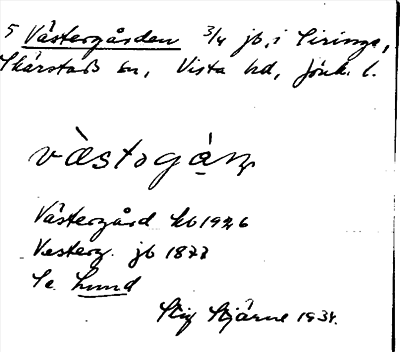 5 Västergården 3/4 jb, i Siringe,
Skärstads sn, Vista hd, Jönk. l.
västogá̱ṇ
Västergård kb 1926
Vesterg. jb 1878
Se Lund
Stig Stjärne 1934.